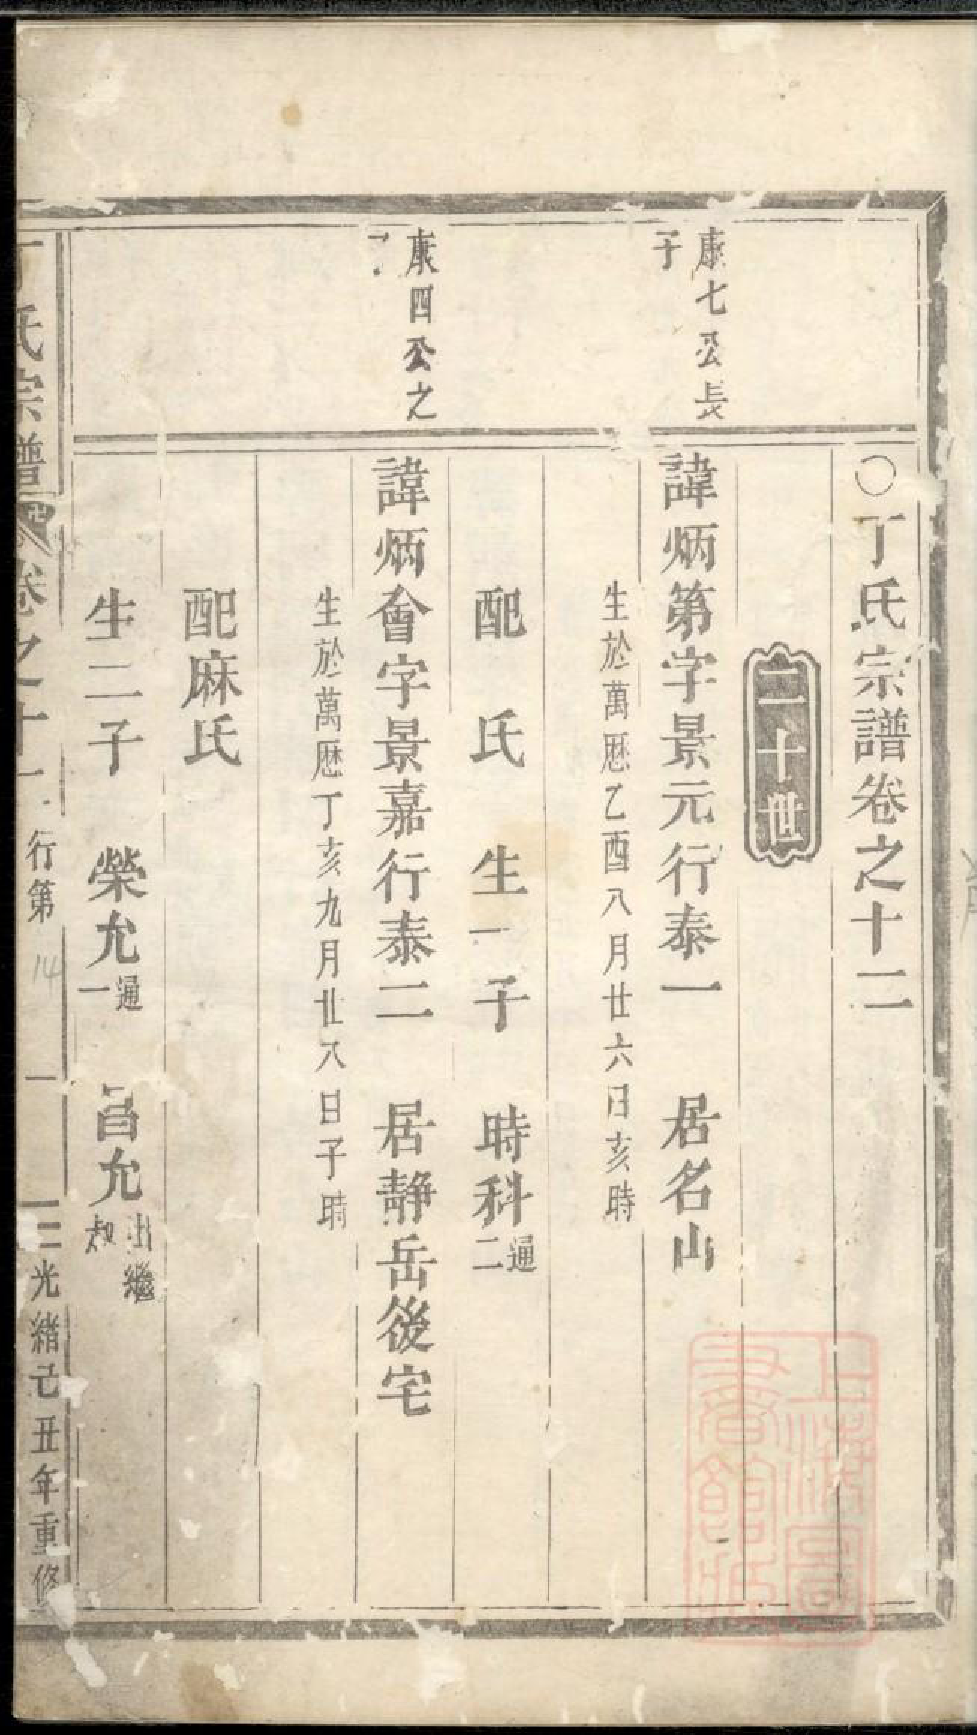 〇丁氏宗譜卷之十二
二十世
康七公長
子
諱炳第字景元行泰一　居名山
生於萬厯乙酉八月廿六日亥時
配　氏　生一子　時科通二
康四公之
諱炳會字景嘉行泰二　居靜岳後宅
生於萬厯丁亥九月廿八日子時
配麻氏
生二子　榮允通一　昌允出繼叔
丁氏宗譜　卷之十二　行第　一　光緒己丑年重修
14
上海圖
書館藏